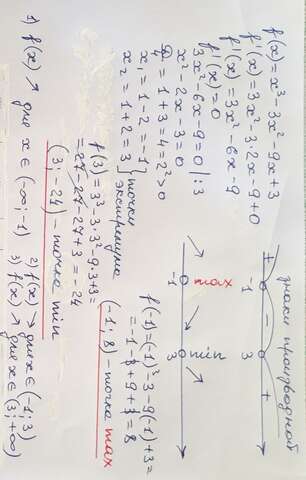 f(x)=x³-3x²-9x+3
f'(x)=3x²-3·2x-9+0
f'(x)=3x²-6x-9
f'(x)=0
3x²-6x-9=0 |:3
x²-2x-3=0
=1+3=4=2²>0
4
x₁=1-2=-1
x₂=1+2=3
точки
экстремума
знаки производной
+ - +
-1 3
max min
-1 3
f(-1)=(-1)³-3-9(-1)+3=
=-1-3+9+3=8
(-1; 8) - точка max
f(3)=3³-3·3²-9·3+3=
=27-27-27+3=-24
(3; -24) - точка min
1) f(x) ↗ для x∈(-∞;-1)
2) f(x) ↘ для x∈(-1;3)
3) f(x) ↗ для x∈(3;+∞)